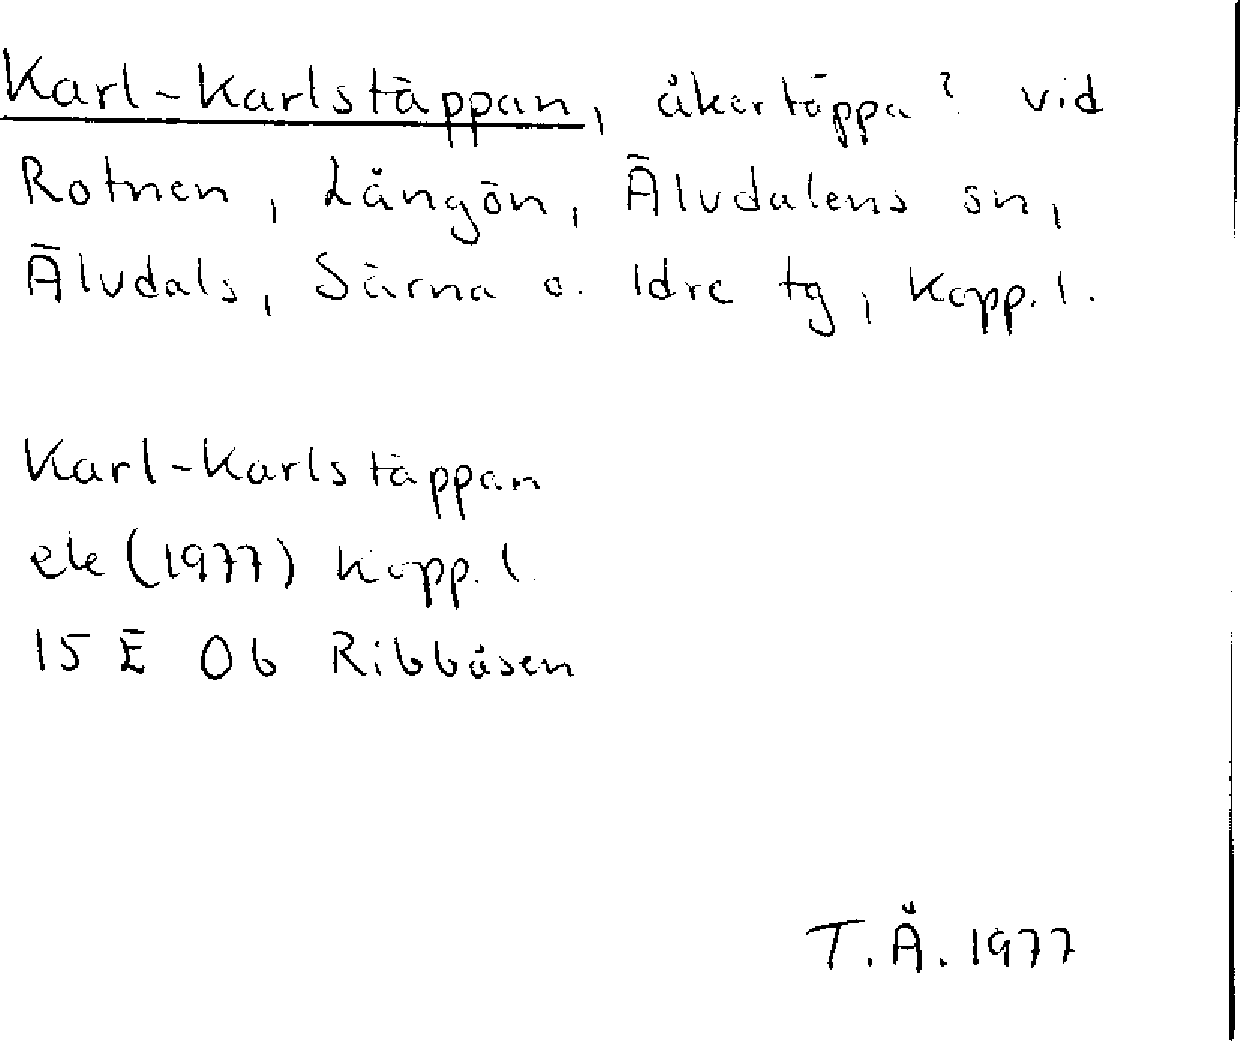 Karl-Karlstäppan, åkertäppa? vid
Rotnen, Långön, Älvdalens sn,
Älvdals, Särna o. Idre tg, Kopp. l.
Karl-Karlstäppan
ek (1977) Kopp. l.
15 E 0b Ribbåsen
T.Å. 1977